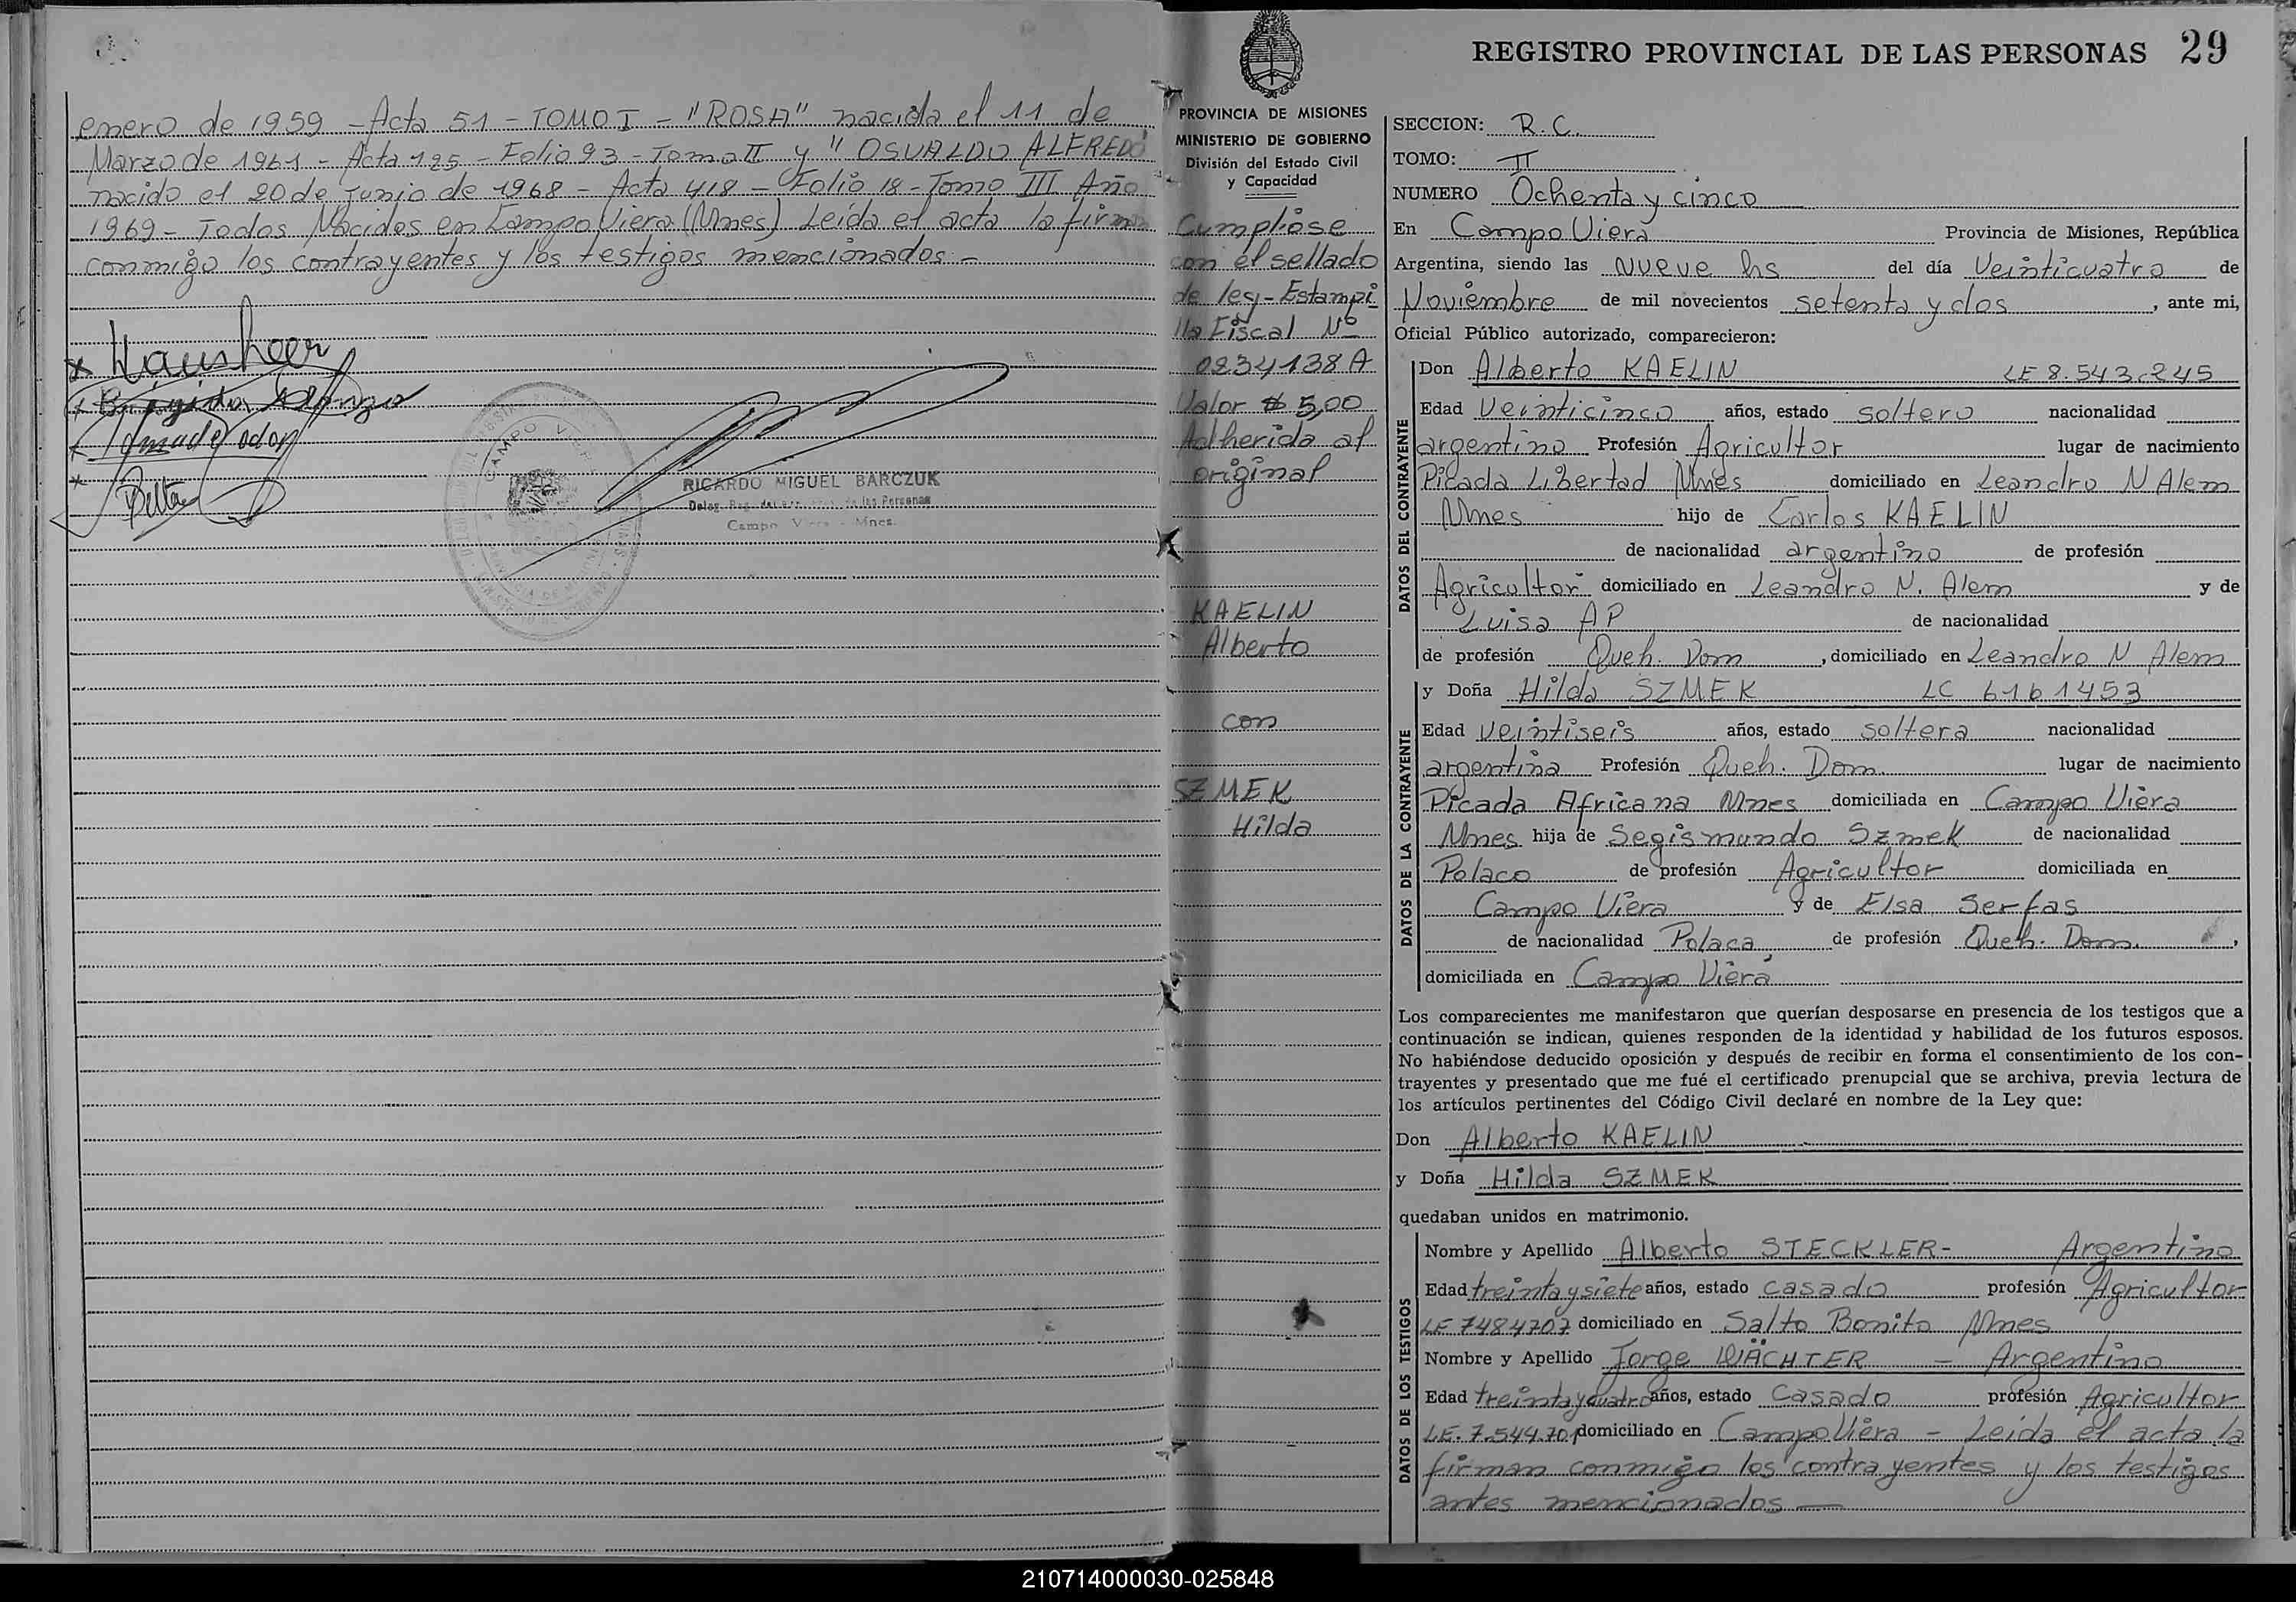 enero de 1959 - Acta 51 - TOMO I - "ROSA" nacida el 11 de
Marzo de 1961 - Acta 195 - Folio 93 - Tomo II y "OSVALDO ALFREDO
nacido el 20 de junio de 1968 - Acta 418 - Folio 18 - Tomo III Año
1969 - Todos Nacidos en Campo Viera (Mnes) Leída el acta la firman
conmigo los contrayentes y los testigos mencionados -
CAMPO VIERA
RICARDO MIGUEL BARCZUK
de las Personas
Campo Viera - Mnes.
PROVINCIA DE MISIONES
MINISTERIO DE GOBIERNO
División del Estado Civil
y Capacidad
Cumpliose
con el sellado
de ley - Estampi
lla Fiscal Nº
0834138 A
Valor $ 5,00
Adherida al
original
KAELIN
Alberto
con
SZMEK
Hilda
REGISTRO PROVINCIAL DE LAS PERSONAS 29
SECCION: R.C.
TOMO: II
NUMERO Ochenta y cinco
En Campo Viera Provincia de Misiones, República
Argentina, siendo las nueve hs del día Veinticuatro de
Noviembre de mil novecientos setenta y dos, ante mi,
Oficial Público autorizado, comparecieron:
DATOS DEL CONTRAYENTE
Don Alberto KAELIN LE 8.543.245
Edad Veinticinco años, estado soltero nacionalidad
argentino Profesión Agricultor lugar de nacimiento
Picada Libertad Mnes domiciliado en Leandro N Alem
Mnes hijo de Carlos KAELIN
de nacionalidad argentino de profesión
Agricultor domiciliado en Leandro N. Alem y de
Luisa AP de nacionalidad
de profesión Queh. Dom, domiciliado en Leandro N Alem
DATOS DE LA CONTRAYENTE
y Doña Hilda SZMEK LC 6161453
Edad veintiseis años, estado soltera nacionalidad
argentina Profesión Queh. Dom. lugar de nacimiento
Picada Africana Mnes domiciliada en Campo Viera
Mnes hija de Segismundo Szmek de nacionalidad
Polaco de profesión Agricultor domiciliada en
Campo Viera y de Elsa Serfas
de nacionalidad Polaca de profesión Queh. Dom.,
domiciliada en Campo Viera
Los comparecientes me manifestaron que querían desposarse en presencia de los testigos que a
continuación se indican, quienes responden de la identidad y habilidad de los futuros esposos.
No habiéndose deducido oposición y después de recibir en forma el consentimiento de los con-
trayentes y presentado que me fué el certificado prenupcial que se archiva, previa lectura de
los artículos pertinentes del Código Civil declaré en nombre de la Ley que:
Don Alberto KAELIN
y Doña Hilda SZMEK
quedaban unidos en matrimonio.
DATOS DE LOS TESTIGOS
Nombre y Apellido Alberto STECKLER - Argentino
Edad treinta y siete años, estado casado profesión Agricultor
LE 7484707 domiciliado en Salto Bonito Mnes
Nombre y Apellido Jorge WÄCHTER - Argentino
Edad treinta y cuatro años, estado Casado profesión Agricultor
LE. 7.544.701 domiciliado en Campo Viera - Leida el acta la
firman conmigo los contrayentes y los testigos
antes mencionados -
210714000030-025848